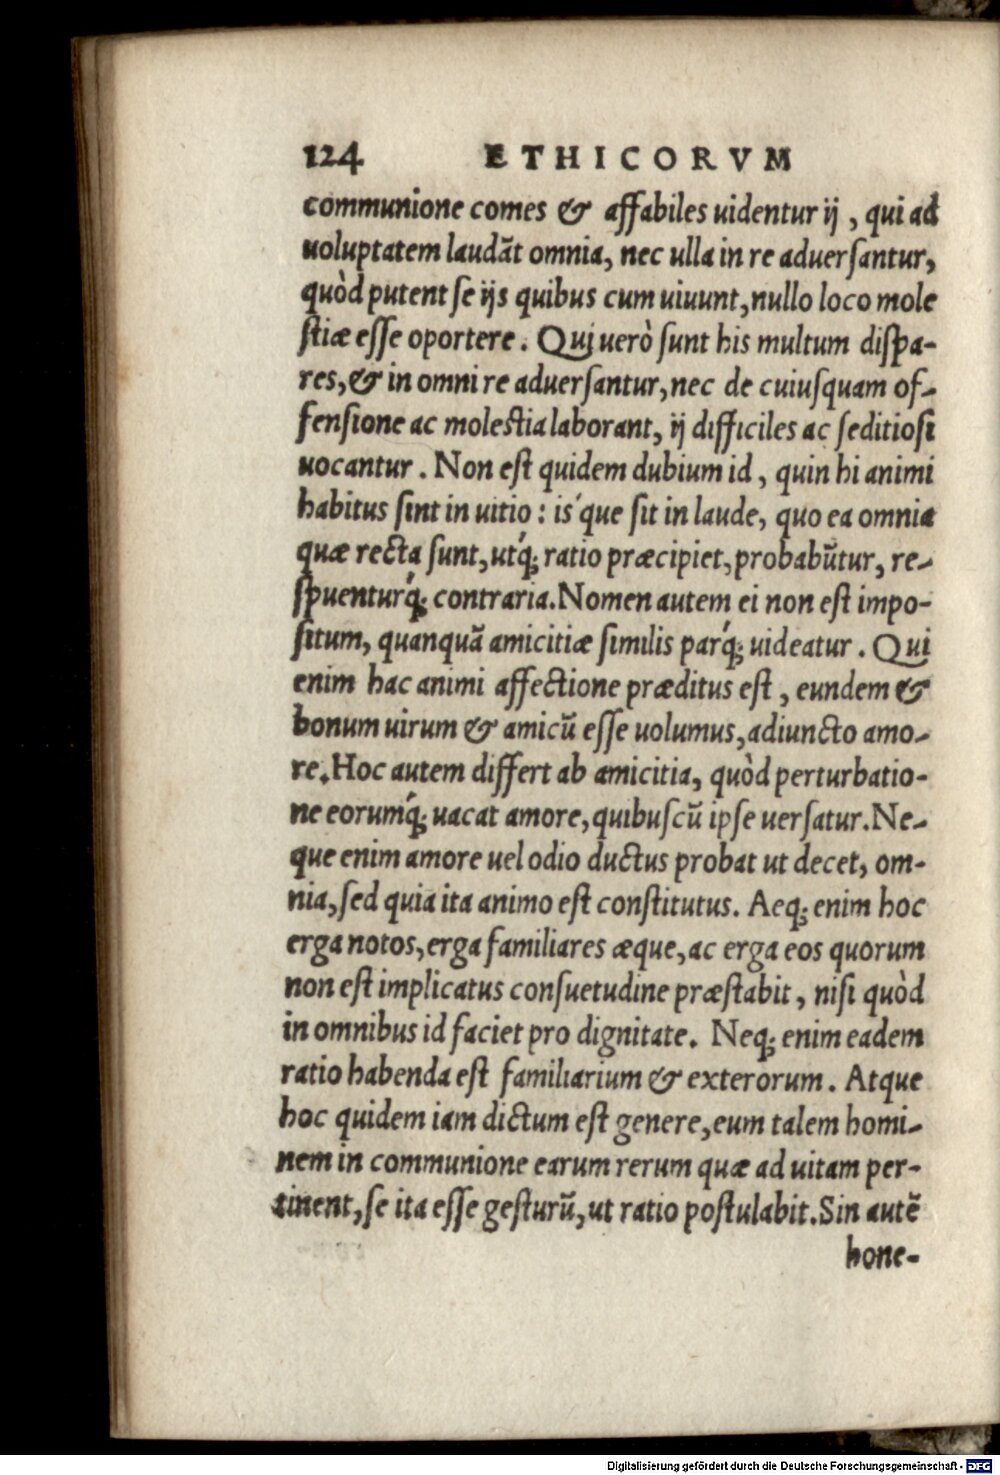 124 ETHICORVM
communione comes & affabiles uidentur ij, qui ad
uoluptatem laudãt omnia, nec ulla in re aduersantur,
quòd putent se ijs quibus cum uiuunt, nullo loco mole
stiæ esse oportere. Qui uerò sunt his multum dispa-
res, & in omni re aduersantur, nec de cuiusquam of-
fensione ac molestia laborant, ij difficiles ac seditiosi
uocantur. Non est quidem dubium id, quin hi animi
habitus sint in uitio: is´que sit in laude, quo ea omnia
quæ recta sunt, ut´q; ratio præcipiet, probabũtur, re-
spuentur´q; contraria. Nomen autem ei non est impo-
situm, quanquã amicitiæ similis par´q; uideatur. Qui
enim hac animi affectione præditus est, eundem &
bonum uirum & amicũ esse uolumus, adiuncto amo-
re. Hoc autem differt ab amicitia, quòd perturbatio-
ne eorum´q; uacat amore, quibuscũ ipse uersatur. Ne-
que enim amore uel odio ductus probat ut decet, om-
nia, sed quia ita animo est constitutus. Aeq; enim hoc
erga notos, erga familiares æque, ac erga eos quorum
non est implicatus consuetudine præstabit, nisi quòd
in omnibus id faciet pro dignitate. Neq; enim eadem
ratio habenda est familiarium & exterorum. Atque
hoc quidem iam dictum est genere, eum talem homi-
nem in communione earum rerum quæ ad uitam per-
tinent, se ita esse gesturũ, ut ratio postulabit. Sin autẽ
hone-
Digitalisierung gefördert durch die Deutsche Forschungsgemeinschaft - DFG